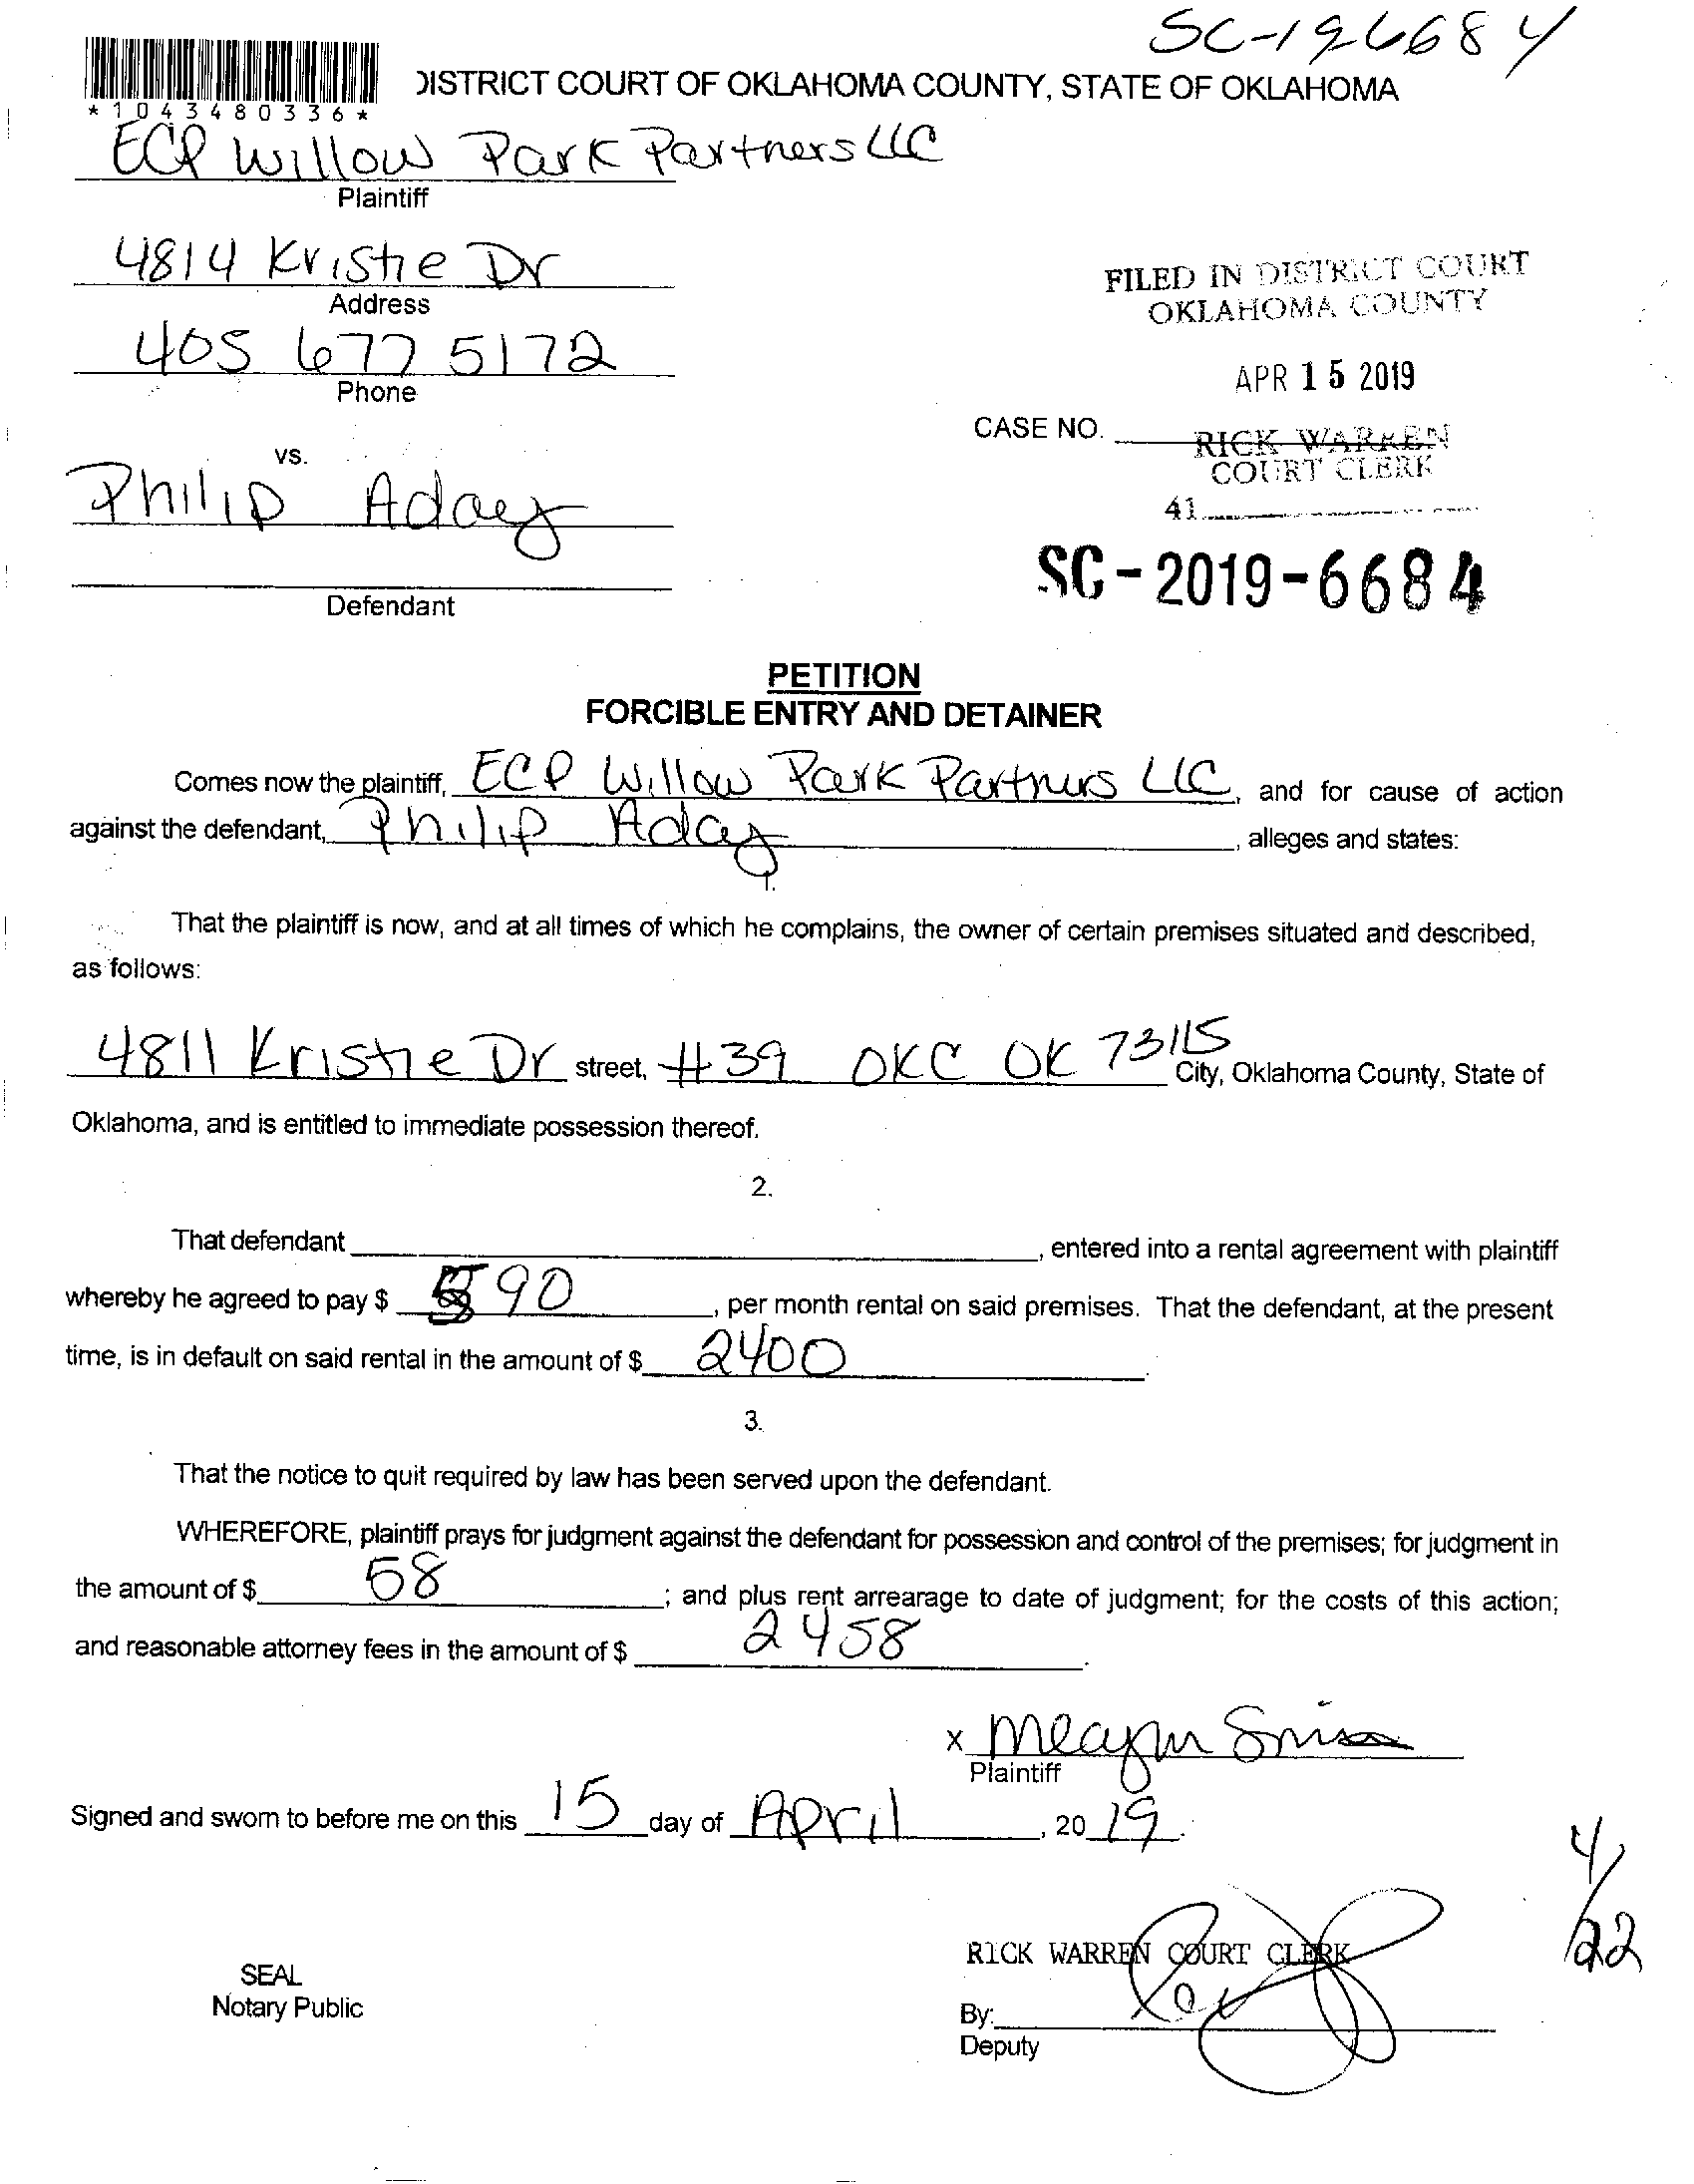 SC-196684
*1043480336*
DISTRICT COURT OF OKLAHOMA COUNTY, STATE OF OKLAHOMA
ECP Willow Park Partners LLC
Plaintiff
4814 Kristie Dr
Address
405 677 5172
Phone
FILED IN DISTRICT COURT
OKLAHOMA COUNTY
APR 15 2019
CASE NO.
RICK WARREN
COURT CLERK
41
vs.
Philip Aday
Defendant
SC-2019-6684
PETITION
FORCIBLE ENTRY AND DETAINER
Comes now the plaintiff, ECP Willow Park Partners LLC, and for cause of action
against the defendant, Philip Aday, alleges and states:
1.
That the plaintiff is now, and at all times of which he complains, the owner of certain premises situated and described,
as follows:
4811 Kristie Dr street, #39 OKC OK 73115 City, Oklahoma County, State of
Oklahoma, and is entitled to immediate possession thereof.
2.
That defendant , entered into a rental agreement with plaintiff
whereby he agreed to pay $ 590, per month rental on said premises. That the defendant, at the present
time, is in default on said rental in the amount of $ 2400.
3.
That the notice to quit required by law has been served upon the defendant.
WHEREFORE, plaintiff prays for judgment against the defendant for possession and control of the premises; for judgment in
the amount of $ 58; and plus rent arrearage to date of judgment; for the costs of this action;
and reasonable attorney fees in the amount of $ 2458.
x
Plaintiff
Signed and sworn to before me on this 15 day of April, 20 19.
4/22
RICK WARREN COURT CLERK
SEAL
Notary Public
By:
Deputy